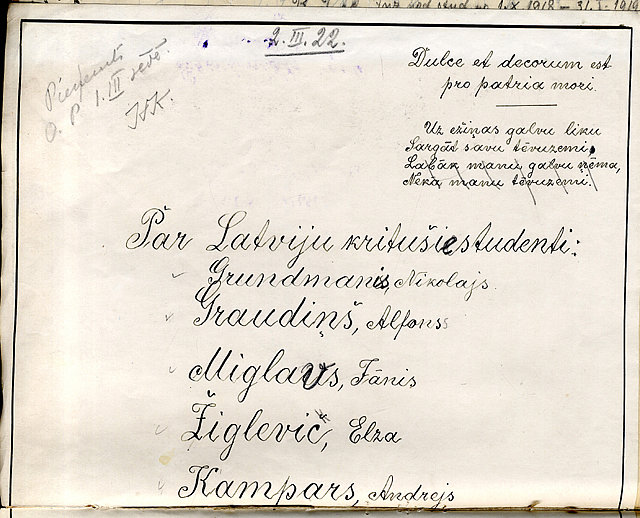 1.X 1918 – 31.I.1919
2.III.22.
Pieņemts
O. P. 1.III sēdē.
Dulce et decorum est
pro patria mori.
Uz ežiņas galvu liku
Sargāt savu tēvuzemi,
Labāk manu galvu ņēma,
Nekā manu tēvuzemi.
Par Latviju kritušie studenti:
Grundmanis, Nikolajs
Graudiņš, Alfons
Miglavs, Jānis
Žiglevič, Elza
Kampars, Andrejs